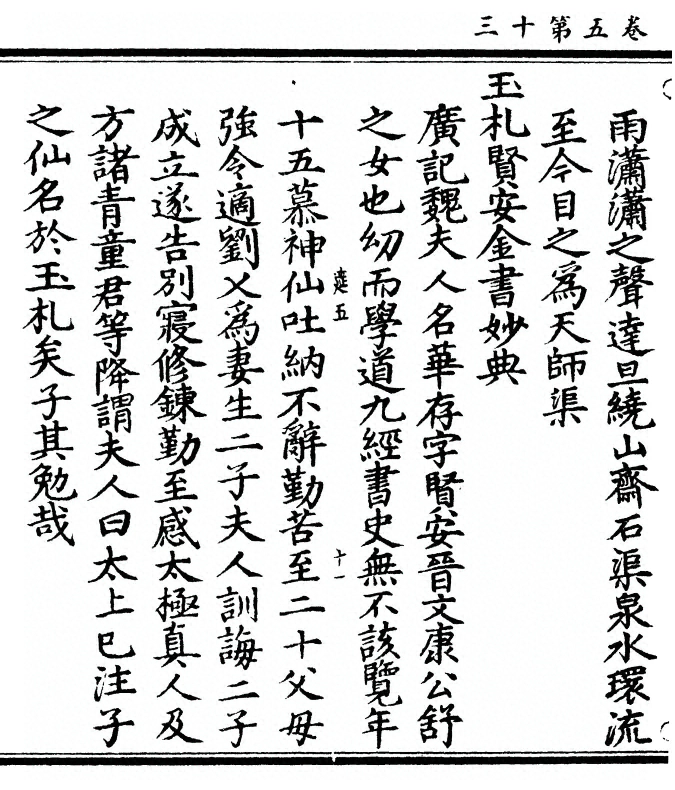 卷五第十三
雨瀟瀟之聲達旦繞山齋石渠泉水環流
至今目之為天師渠
玉札賢安金書妙典
廣記魏夫人名華存字賢安晉文康公舒
之女也幼而學道九經書史無不該覽年
達五
十一
十五慕神仙吐納不辭勤苦至二十父母
強令適劉乂為妻生二子夫人訓誨二子
成立遂告別寢修鍊勤至感太極真人及
方諸青童君等降謂夫人曰太上已注子
之仙名於玉札矣子其勉哉